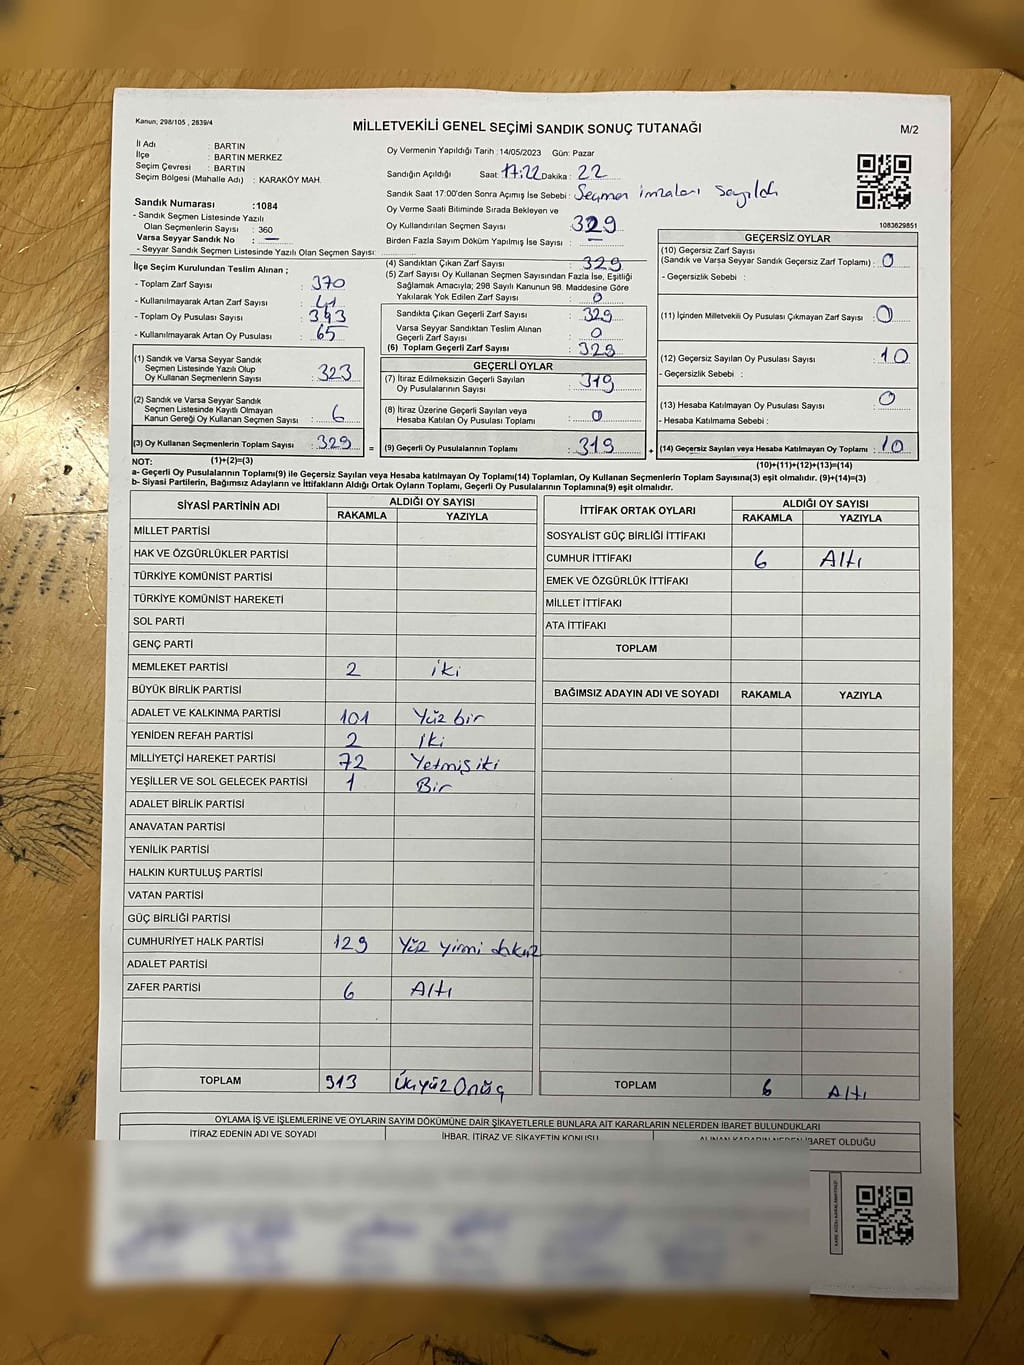 Kanun; 298/105 , 2839/4
MİLLETVEKİLİ GENEL SEÇİMİ SANDIK SONUÇ TUTANAĞI
M/2
İl Adı : BARTIN
İlçe : BARTIN MERKEZ
Seçim Çevresi : BARTIN
Seçim Bölgesi (Mahalle Adı) : KARAKÖY MAH.
Sandık Numarası :1084
- Sandık Seçmen Listesinde Yazılı
Olan Seçmenlerin Sayısı : 360
Varsa Seyyar Sandık No : —
- Seyyar Sandık Seçmen Listesinde Yazılı Olan Seçmen Sayısı:
İlçe Seçim Kurulundan Teslim Alınan ;
- Toplam Zarf Sayısı : 370
- Kullanılmayarak Artan Zarf Sayısı : 41
- Toplam Oy Pusulası Sayısı : 393
- Kullanılmayarak Artan Oy Pusulası : 65
(1) Sandık ve Varsa Seyyar Sandık
Seçmen Listesinde Yazılı Olup
Oy Kullanan Seçmenlerin Sayısı : 323
(2) Sandık ve Varsa Seyyar Sandık
Seçmen Listesinde Kayıtlı Olmayan
Kanun Gereği Oy Kullanan Seçmen Sayısı : 6
(3) Oy Kullanan Seçmenlerin Toplam Sayısı : 329 =
Oy Vermenin Yapıldığı Tarih : 14/05/2023 Gün: Pazar
Sandığın Açıldığı Saat: 17:22 Dakika : 22
Sandık Saat 17:00'den Sonra Açımış İse Sebebi : Seçmen imzaları sayıldı
Oy Verme Saati Bitiminde Sırada Bekleyen ve
Oy Kullandırılan Seçmen Sayısı : 329
Birden Fazla Sayım Döküm Yapılmış İse Sayısı : —
(4) Sandıktan Çıkan Zarf Sayısı : 329
(5) Zarf Sayısı Oy Kullanan Seçmen Sayısından Fazla İse, Eşitliği
Sağlamak Amacıyla; 298 Sayılı Kanunun 98. Maddesine Göre
Yakılarak Yok Edilen Zarf Sayısı : 0
Sandıkta Çıkan Geçerli Zarf Sayısı : 329
Varsa Seyyar Sandıktan Teslim Alınan
Geçerli Zarf Sayısı : 0
(6) Toplam Geçerli Zarf Sayısı : 329
GEÇERLİ OYLAR
(7) İtiraz Edilmeksizin Geçerli Sayılan
Oy Pusulalarının Sayısı : 319
(8) İtiraz Üzerine Geçerli Sayılan veya
Hesaba Katılan Oy Pusulası Toplamı : 0
(9) Geçerli Oy Pusulalarının Toplamı : 319 +
1083629851
GEÇERSİZ OYLAR
(10) Geçersiz Zarf Sayısı
(Sandık ve Varsa Seyyar Sandık Geçersiz Zarf Toplamı) : 0
- Geçersizlik Sebebi :
(11) İçinden Milletvekili Oy Pusulası Çıkmayan Zarf Sayısı : 0
(12) Geçersiz Sayılan Oy Pusulası Sayısı : 10
- Geçersizlik Sebebi :
(13) Hesaba Katılmayan Oy Pusulası Sayısı : 0
- Hesaba Katılmama Sebebi :
(14) Geçersiz Sayılan veya Hesaba Katılmayan Oy Toplamı : 10
NOT: (1)+(2)=(3) (10)+(11)+(12)+(13)=(14)
a- Geçerli Oy Pusulalarının Toplamı(9) ile Geçersiz Sayılan veya Hesaba Katılmayan Oy Toplamı(14) Toplamları, Oy Kullanan Seçmenlerin Toplam Sayısına(3) eşit olmalıdır. (9)+(14)=(3)
b- Siyasi Partilerin, Bağımsız Adayların ve İttifakların Aldığı Ortak Oyların Toplamı, Geçerli Oy Pusulalarının Toplamına(9) eşit olmalıdır.
SİYASİ PARTİNİN ADI ALDIĞI OY SAYISI
RAKAMLA YAZIYLA
MİLLET PARTİSİ
HAK VE ÖZGÜRLÜKLER PARTİSİ
TÜRKİYE KOMÜNİST PARTİSİ
TÜRKİYE KOMÜNİST HAREKETİ
SOL PARTİ
GENÇ PARTİ
MEMLEKET PARTİSİ 2 iki
BÜYÜK BİRLİK PARTİSİ
ADALET VE KALKINMA PARTİSİ 101 Yüz bir
YENİDEN REFAH PARTİSİ 2 İki
MİLLİYETÇİ HAREKET PARTİSİ 72 Yetmiş iki
YEŞİLLER VE SOL GELECEK PARTİSİ 1 Bir
ADALET BİRLİK PARTİSİ
ANAVATAN PARTİSİ
YENİLİK PARTİSİ
HALKIN KURTULUŞ PARTİSİ
VATAN PARTİSİ
GÜÇ BİRLİĞİ PARTİSİ
CUMHURİYET HALK PARTİSİ 129 Yüz yirmi dokuz
ADALET PARTİSİ
ZAFER PARTİSİ 6 Altı
TOPLAM 313 Üçyüz Onüç
İTTİFAK ORTAK OYLARI ALDIĞI OY SAYISI
RAKAMLA YAZIYLA
SOSYALİST GÜÇ BİRLİĞİ İTTİFAKI
CUMHUR İTTİFAKI 6 Altı
EMEK VE ÖZGÜRLÜK İTTİFAKI
MİLLET İTTİFAKI
ATA İTTİFAKI
TOPLAM
BAĞIMSIZ ADAYIN ADI VE SOYADI RAKAMLA YAZIYLA
TOPLAM 6 Altı
OYLAMA İŞ VE İŞLEMLERİNE VE OYLARIN SAYIM DÖKÜMÜNE DAİR ŞİKAYETLERLE BUNLARA AİT KARARLARIN NELERDEN İBARET BULUNDUKLARI
İTİRAZ EDENİN ADI VE SOYADI İHBAR, İTİRAZ VE ŞİKAYETİN KONUSU ALINAN KARARIN NEDEN İBARET OLDUĞU